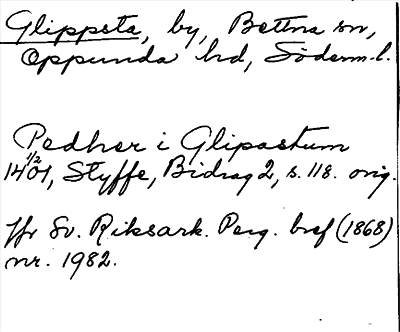 Glippsta, by, Bettna sn,
Oppunda hd, Söderm.l.
Pedher i Glipastum
14 1/2 01, Styffe, Bidrag 2, s. 118. orig.
Jfr Sv. Riksark. Perg. bref (1868)
nr. 1982.